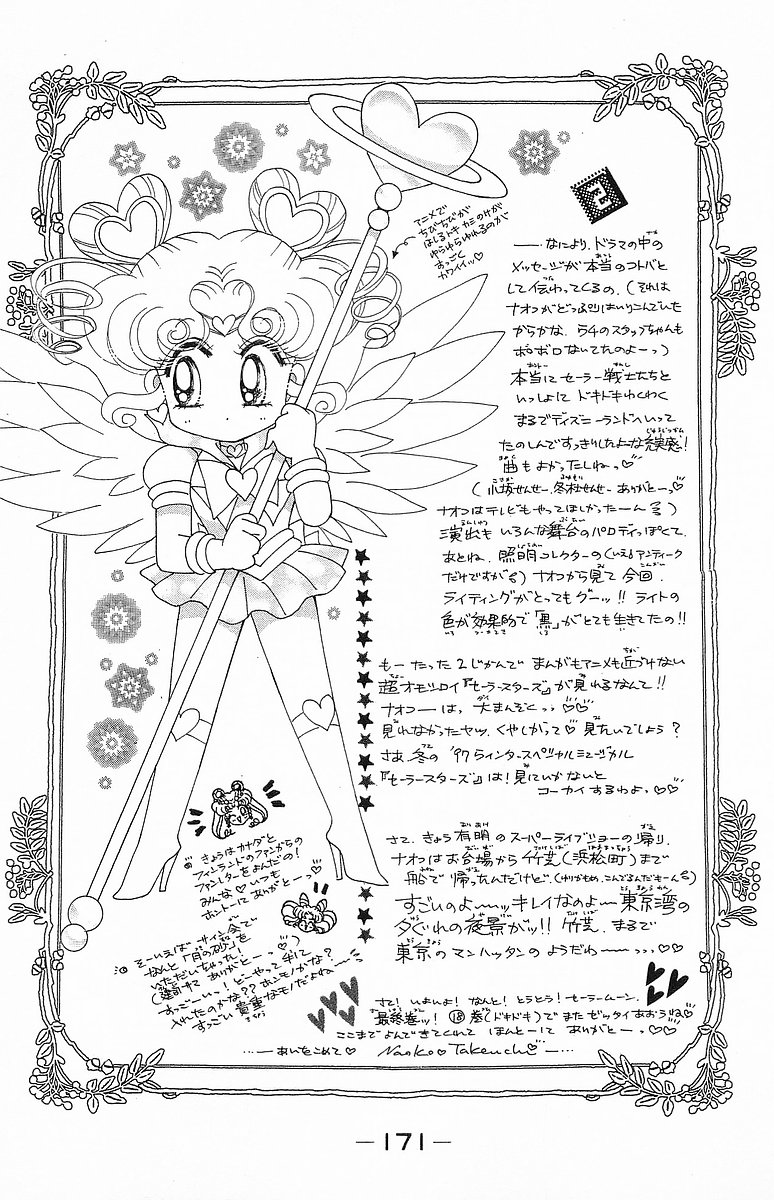 2
アニメで
ちびちびが
はしるトキ カミのケが
ゆらゆらゆれるのが
すっごく
カワイイッ♡
――なにより、ドラマの中の
メッセージが本当のコトバと
して伝わってくるの。(それは
ナオコがどっぷりはいりこんでいた
からかな。54のスタッフちゃんも
ボロボロないてたのよーっ)
本当にセーラー戦士たちと
いっしょに ドキドキわくわく
まるでディズニーランドへいって
たのしんですっきりしたよーな充実感!
曲もよかったしねっ♡
(小坂せんせー、冬杜せんせー ありがとーっ♡
ナオコはテレビもやってほしかったーん)
演出も いろんな舞台のパロディっぽくて、
あとね、照明コレクターの(いえるアンティーク
だけですが)ナオコから見て 今回、
ライティングがとってもグーッ!! ライトの
色が効果的で「黒」がとても生きてたの!!
もーたった2じかんで まんがもアニメも近づけない
超オモシロイ『セーラースターズ』が見れるなんて!!
ナオコ――は、大まんぞくっっ♡♡
見れなかったヤツ、くやしがって♡見たいでしょう?
さあ、冬の '97ウィンタースペシャルミュージカル
『セーラースターズ』は!見にいかないと
コーカイするわよっ♡♡
さて、きょう有明のスーパーライブショーの帰り、
ナオコはお台場から竹芝(浜松町)まで
船で帰ったんだけど、(ゆりかもめ、こんでるんだもーん)
すごいのよ――ッッキレイなのよ―東京湾の
夕ぐれの夜景がッ!! 竹芝、まるで
東京のマンハッタンのようだわ――っっっ♡♡
きょうはカナダと
フィンランドのファンからの
ファンレターをよんだの!
みんな♡いつも
ホントーにありがとーっ♡
そーいえばサイン会で
なんと「月の砂」を
いただいちゃった!
すっごーいっ!どーやって手に
入れたのかな??ホンモノかな?
すっごい貴重なモノだよねー
さて!いよいよ!なんと!とうとう!セーラームーン、
最終巻ッ! ⑱巻(ドキドキ)でまたゼッタイあおうね♡
ここまでよんできてくれて ほんとーにありがとーっ♡♡
…―あいをこめて♡ Naoko♡Takeuchi―…
―171―